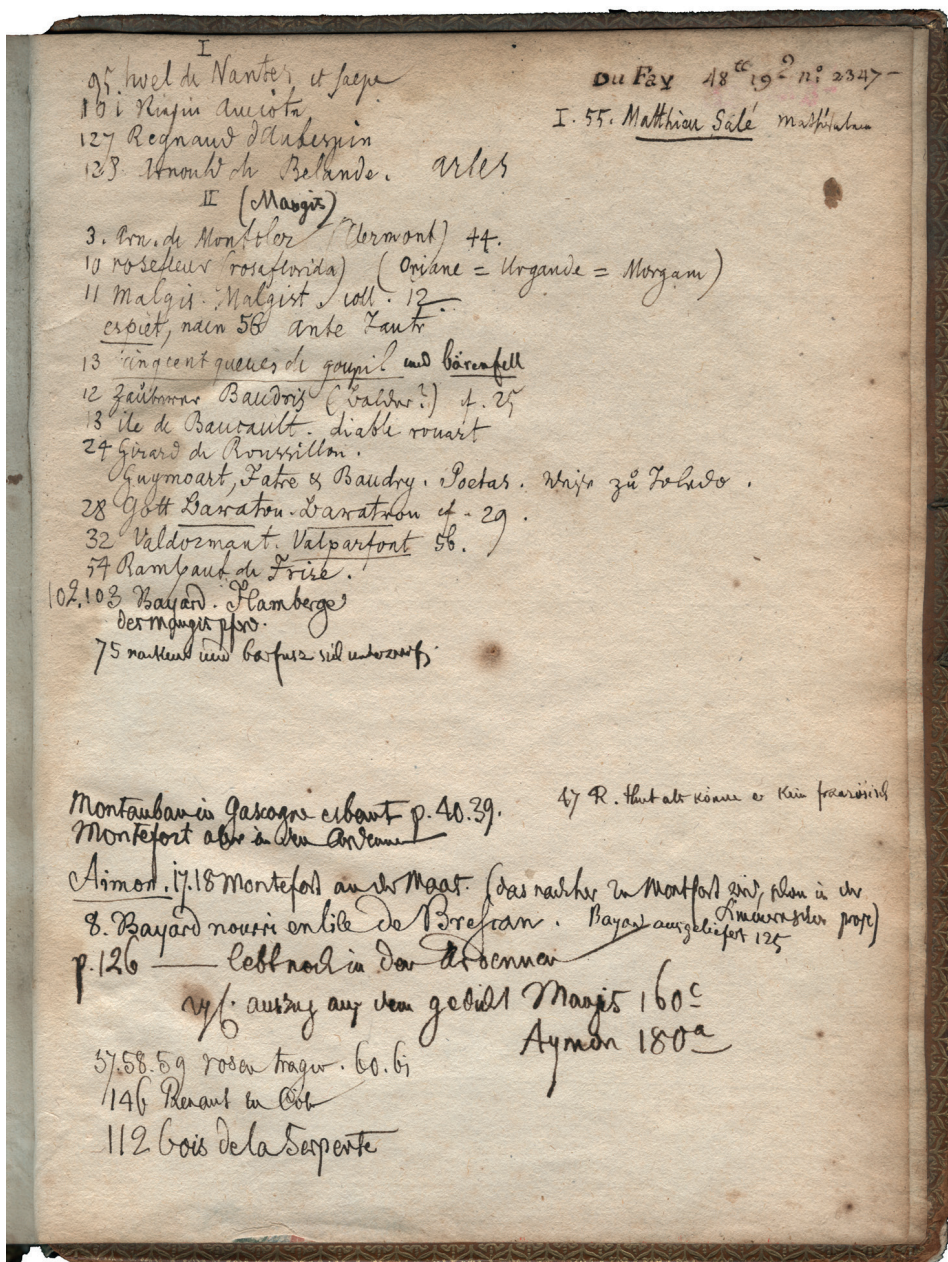 I
95. hoel de Nantes et saepe
Du Fay 48 19 n° 2347 -
101 Rispin
I. 55. Matthieu Salé
127 Regnaud d'Aubespin
128. Arnould de Belande. arles
II (Maugis)
3. Arn. de Montoler (Clermont) 44.
10 rosefleur (rosaflorida) (Oriane = Urgande = Morgam)
11 Malgis. Malgist, coll. 12
espiet, nain 56 ante
13 cinqcent queues de goupil und bärenfell
12 Zauberer Baudris (balder?) cf. 25
13 ile de Baucault. diable rouart
24 Girard de Roussillon.
Guymoart, Fatre & Baudry. Poetas. weise zu Toledo.
28 Gott Baraton. Baratron cf. 29.
32 Valdormant. Valparfont 56.
54 Rambaut de Frise.
102.103 Bayard. Flamberge
des Maugis pferd.
75 nackend und barfusz sich unterwerfen
Montauban in Gascogne erbaut p. 40.39.
47 R. thut als könne er kein französisch
Montefort aber in den Ardennen
Aimon. 17.18 Montefort an der Maas. (das nachher zu Montfort wird, schon in der
prose)
8. Bayard nourri en lile de Brescan. Bayard ausgeliefert 125
p. 126 — lebt noch in den Ardennen
vgl. auszug aus dem gedicht Maugis 160c
Aymon 180a
57.58.59 rosen tragen. 60.61
146 Renaut in Cöln
112 bois de la Serpente